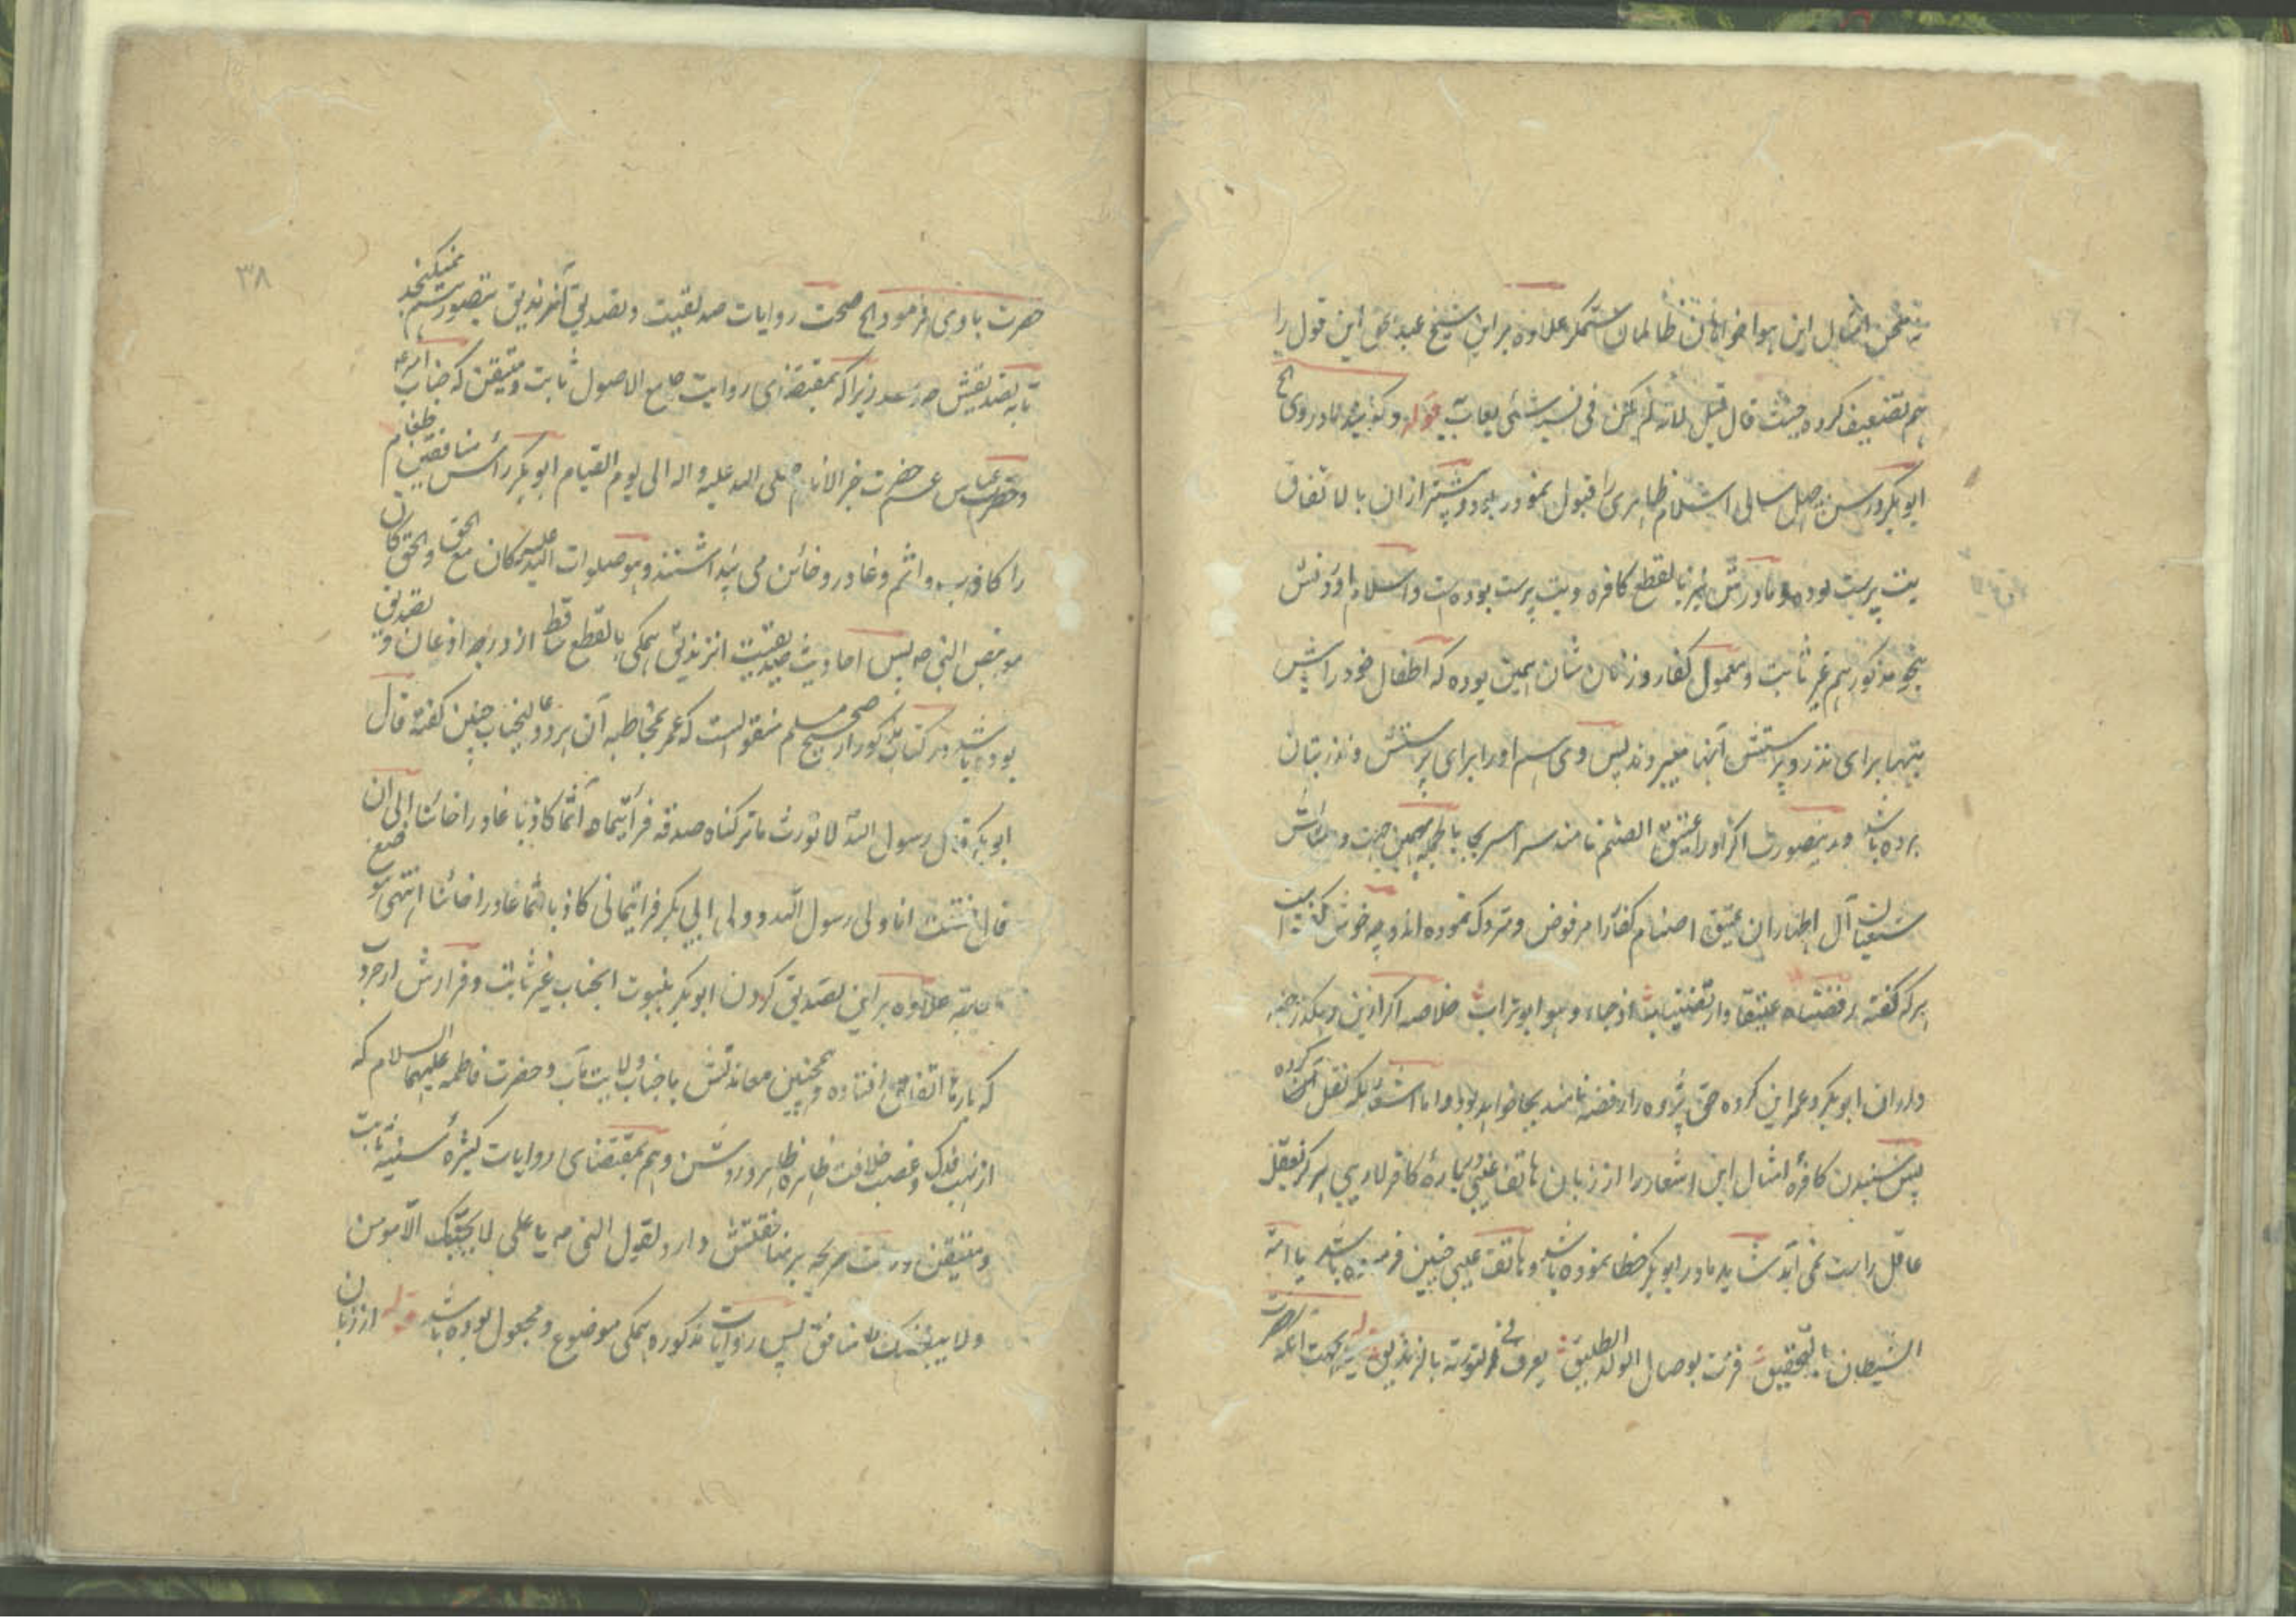 نه محض امثال این هواخواهان ظالمان ستمگر علاوه بر این شیخ عبد حق این قول را
هم تضعیف کرده حیث قال قیل لانه لم یکن فی نسبه شئی یعاب به قوله و گویند مادر وی الخ
ابوبکر در سن چهل سالی اسلام ظاهری را قبول نموده بود و پیشتر ازان بالاتفاق
بت پرست بوده و مادرش نیز بالقطع کافره و بت پرست بوده است و اسلام او و نش
بنحو مذکور هم غیر ثابت و معمول کفار و زنان شان همین بوده که اطفال خود را پیش
بتها برای نذر و پرستش آنها میبردند پس وی هم او را برای پرستش و نذر بتان
برده باشد و درینصورت اگر او را عتیق الصنم نامند سراسر بجا بالجمله بهمین جهت
شیعیان آل اطهار ان عتیق اصنام کفار را مرفوض و متروک نموده اند و چه خوش گفته است
هر که گفته رفضناه عتیقا وارتضینا اذ جاء وهو ابو تراب خلاصه اگر ازین رهگذر
داران ابوبکر و عمر این گروه حق پژوه را رافضه نامند بجا خواهد بود و اما اشعاریکه نقل آن کرده
پس شنیدن کافره امثال این اشعار را از زبان هاتف غیبی در باره کافر لاریبی هرگز بعقل
عاقل راست نمی آید شاید مادر ابوبکر خطا نموده باشد و هاتف غیبی چنین فرموده باشد یا امة
الشیطان بالتحقیق فزت بوصال الولد الطلیق یعرف فی التوریة بالزندیق قوله بجهت آنکه آنحضرت
۳۸
حضرت با وی فرمود الخ صحت روایات صدیقیت و تصدیق آن زندیق بتصور هم نمیگنجد
تا به تصدیقش چه رسد زیرا که بمقتضای روایت جامع الاصول ثابت و متیقن که جناب امیر ع
و حضرت عباس عم حضرت خیر الانام صلی الله علیه و اله الی یوم القیام ابوبکر رأس منافقین طغام
را کاذب و اثم و غادر و خائن می پنداشتند و هو صلوات الله علیه کان مع الحق و الحق کان
مع بنص النبی ص پس احادیث صدیقیت انزندیق همگی بالقطع ساقط از درجه اذعان و تصدیق
بوده باشد و در کتاب مذکور از صحیح مسلم منقولست که عمر بمخاطبه آن هر دو عالیجناب چنین گفته قال
ابوبکر قال رسول الله لا نورث ما ترکناه صدقة فرأیتماه آثما کاذبا غادرا خائنا الی ان
قال فقلت انا ولی رسول الله و ولی ابی بکر فرأیتمانی کاذبا اثما غادرا خائنا انتهی موضع
علاوه بر این تصدیق کردن ابوبکر بنبوت آنجناب غیر ثابت و فرارش از حروب
که بارها اتفاق افتاده و همچنین معاندتش با جناب ولایت مآب و حضرت فاطمه علیهما السلام که
از نهب فدک و غصب خلافت ظاهره ظاهر و روشن و هم بمقتضای روایات کثیره سنیه ثابت
و متیقن دلالت صریحه بر منافقتش دارد لقول النبی ص یا علی لا یحبک الا مومن
ولا یبغضک الا منافق پس روایات مذکوره همگی موضوع و مجعول بوده باشد قوله از زبان